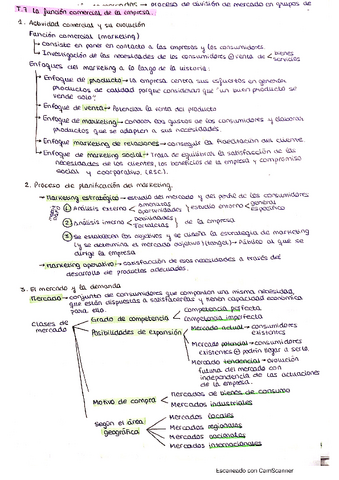 → proceso de división de mercado en grupos de
T.7 La función comercial de la empresa.
1. Actividad comercial y su evolución
Función comercial (marketing)
→ consiste en poner en contacto a las empresas y los consumidores.
→ Investigación de las necesidades de los consumidores ⊕ venta de bienes
servicios
Enfoques del marketing a lo largo de la historia:
→ Enfoque de producto → la empresa centra sus esfuerzos en generar
productos de calidad porque consideran que "un buen producto se
vende solo".
→ Enfoque de venta → Potenciar la venta del producto
→ Enfoque de marketing → Conocer los gustos de los consumidores y elaborar
productos que se adapten a sus necesidades.
→ Enfoque marketing de relaciones → conseguir la fidelización del cliente.
→ Enfoque de marketing social → Trata de equilibrar la satisfacción de las
necesidades de los clientes, los beneficios de la empresa y compromiso
social y corporativo. (R.S.C.).
2. Proceso de planificación del marketing.
→ Marketing estratégico → estudio del mercado y del perfil de los consumidores
① Análisis externo amenazas
oportunidades estudio entorno general
específico
② Análisis interno Debilidades
Fortalezas de la empresa
③ Se establecen los objetivos y se diseña la estrategia de marketing
(y se determina el mercado objetivo) (target) → Público al que se
dirige la empresa
→ Marketing operativo → satisfacción de esas necesidades a través del
desarrollo de productos adecuados.
3. El mercado y la demanda
Mercado → conjunto de consumidores que comparten una misma necesidad,
que están dispuestas a satisfacerla y tienen capacidad económica
para ello.
Clases de
mercado
Grado de competencia
Competencia perfecta
Competencia imperfecta
Posibilidades de expansión
Mercado actual → consumidores
existentes
Mercado potencial → consumidores
existentes ⊕ podrían llegar a serlo.
Mercado tendencial → evolución
futura del mercado con
independencia de las actuaciones
de la empresa.
Motivo de compra
Mercados de bienes de consumo
Mercados industriales
Según el área
geográfica
Mercados locales
Mercados regionales
Mercados nacionales
Mercados internacionales
Escaneado con CamScanner